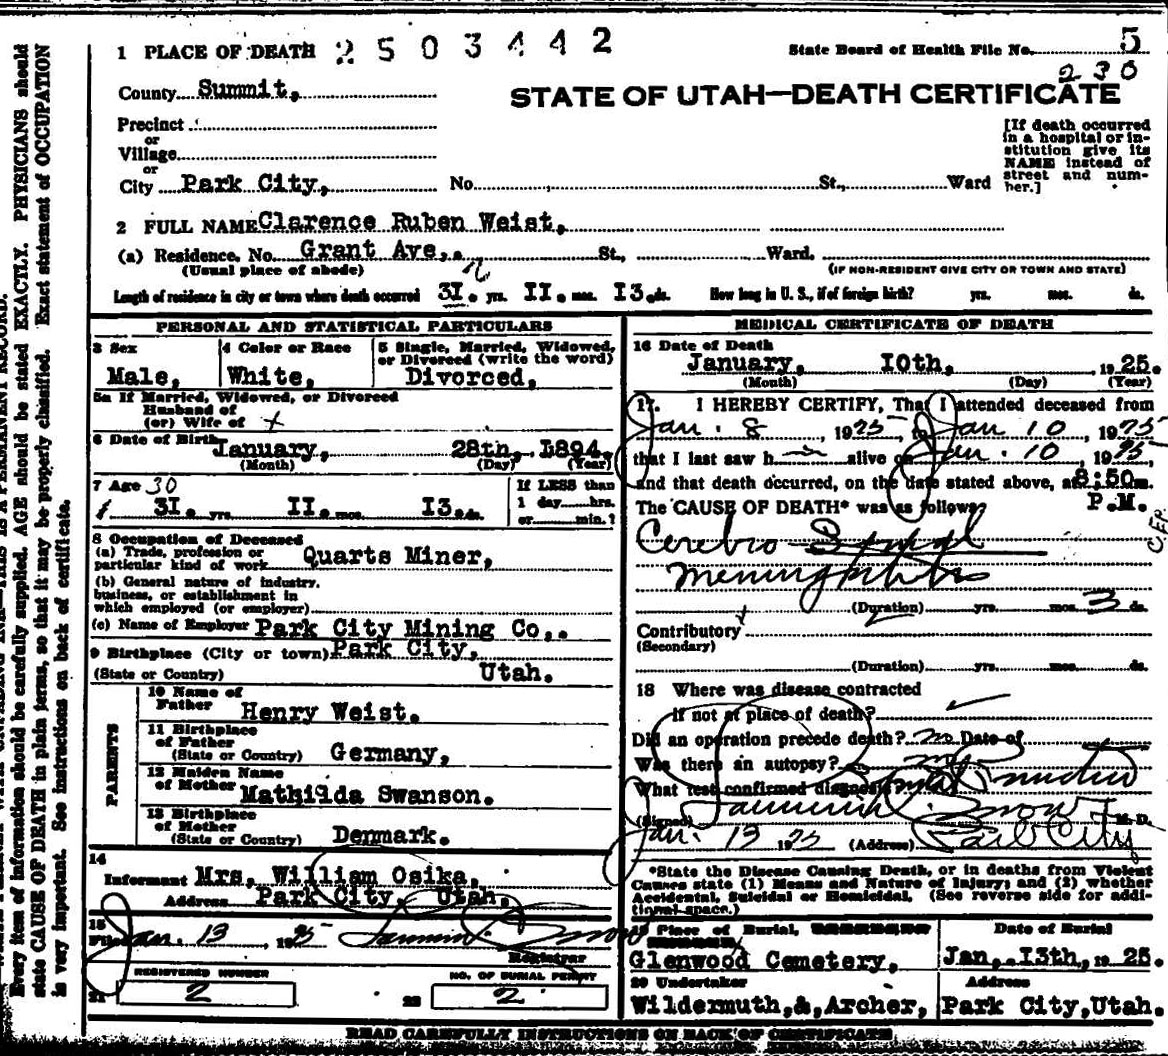 1 PLACE OF DEATH 2503442 State Board of Health File No. 5
230
County Summit, STATE OF UTAH—DEATH CERTIFICATE
Precinct
or
Village
or
City Park City, No. St., Ward
[If death occurred
in a hospital or in-
stitution give its
NAME instead of
street and num-
ber.]
2 FULL NAME Clarence Ruben Weist,
(a) Residence. No. Grant Ave,. St., Ward.
(Usual place of abode) (IF NON-RESIDENT GIVE CITY OR TOWN AND STATE)
Length of residence in city or town where death occurred 3I. yrs. II. mos. I3. ds. How long in U. S., if of foreign birth? yrs. mos. ds.
PERSONAL AND STATISTICAL PARTICULARS
3 Sex
Male,
4 Color or Race
White,
5 Single, Married, Widowed,
or Divorced (write the word)
Divorced,
5a If Married, Widowed, or Divorced
Husband of
(or) Wife of x
6 Date of Birth January, 28th, I894.
(Month) (Day) (Year)
7 Age 30
3I. yrs. II. mos. I3. ds.
If LESS than
1 day hrs.
or min.?
8 Occupation of Deceased
(a) Trade, profession or
particular kind of work Quarts Miner,
(b) General nature of industry.
business, or establishment in
which employed (or employer)
(c) Name of Employer Park City Mining Co,.
9 Birthplace (City or town) Park City,
(State or Country) Utah.
PARENTS
10 Name of
Father Henry Weist.
11 Birthplace
of Father
(State or Country) Germany,
12 Maiden Name
of Mother Mathilda Swanson.
13 Birthplace
of Mother
(State or Country) Denmark.
14
Informant Mrs, William Osika,
Address Park City, Utah,
15
Filed Jan. 13, 1925
Registrar
REGISTERED NUMBER
21 2
NO. OF BURIAL PERMIT
22 2
MEDICAL CERTIFICATE OF DEATH
16 Date of Death
January, I0th, 1925.
(Month) (Day) (Year)
17. I HEREBY CERTIFY, That I attended deceased from
Jan. 8, 1925, to Jan 10, 1925
that I last saw h alive on Jan. 10, 1925,
and that death occurred, on the date stated above, at 8:50m.
P.M.
The CAUSE OF DEATH* was as follows
Cerebro Spinal
Meningitis
(Duration) yrs. mos. 3 ds.
Contributory
(Secondary)
(Duration) yrs. mos. ds.
18 Where was disease contracted
if not at place of death?
Did an operation precede death? no Date of
Was there an autopsy? no
What test confirmed diagnosis?
(Signed) Snow M.D.
Jan. 13 1925 (Address) Park City
*State the Disease Causing Death, or in deaths from Violent
Causes state (1) Means and Nature of Injury; and (2) whether
Accidental, Suicidal or Homicidal. (See reverse side for addi-
tional space.)
19 Place of Burial,
Glenwood Cemetery,
Date of Burial
Jan,.I3th, 1925.
20 Undertaker
Wildermuth,&,Archer,
Address
Park City,Utah.
READ CAREFULLY INSTRUCTIONS ON BACK OF CERTIFICATE
Every item of information should be carefully supplied. AGE should be stated EXACTLY. PHYSICIANS should
state CAUSE OF DEATH in plain terms, so that it may be properly classified. Exact statement of OCCUPATION
is very important. See instructions on back of certificate.